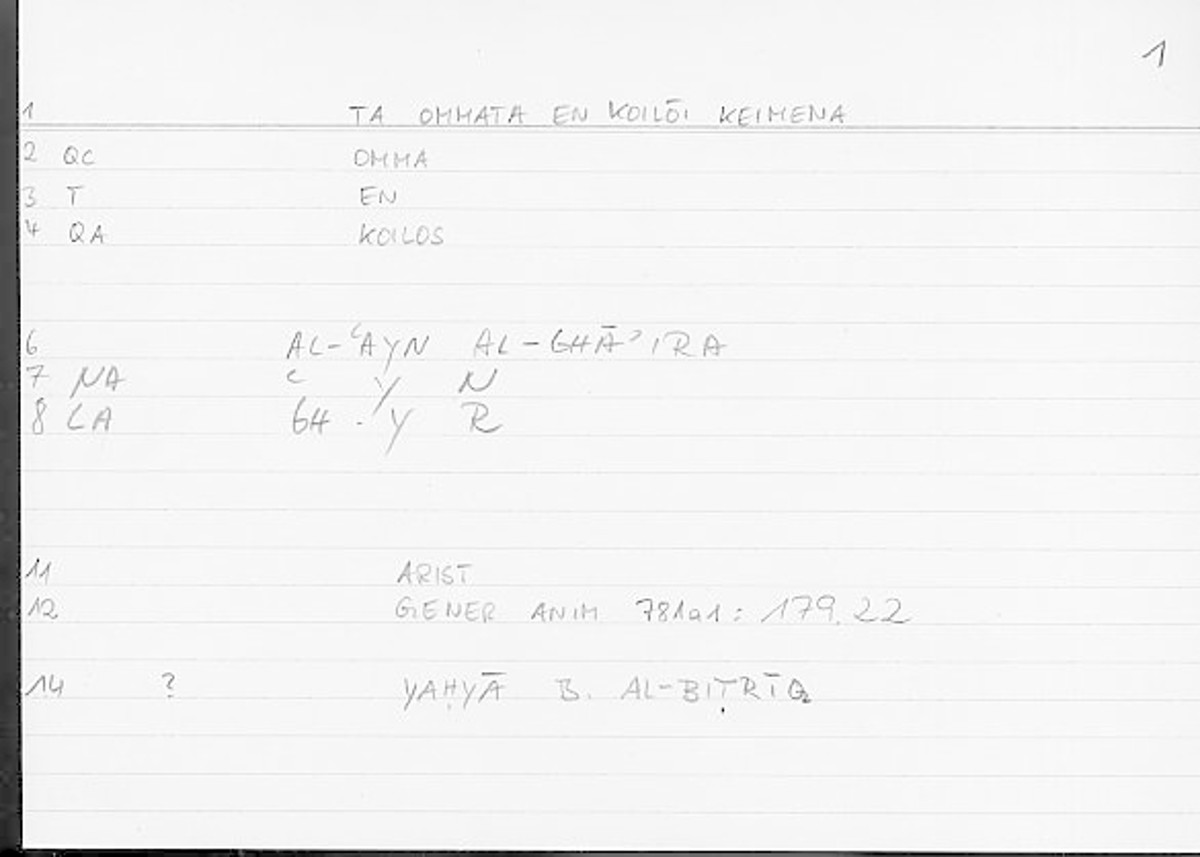 1
1 TA OMMATA EN KOILŌI KEIMENA
2 QC OMMA
3 T EN
4 QA KOILOS
6 AL-ʿAYN AL-GHĀʾIRA
7 NA ʿ Y N
8 LA GH . Y R
11 ARIST
12 GENER ANIM 781a1 : 179.22
14 ? YAḤYĀ B. AL-BIṬRĪQ